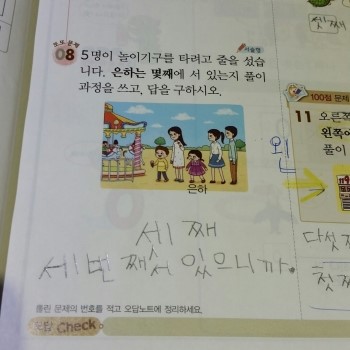 쏘쏘 문제
서술형
08 5명이 놀이기구를 타려고 줄을 섰습
니다. 은하는 몇째에 서 있는지 풀이
과정을 쓰고, 답을 구하시오.
은하
세 째
세 번 째 서 있으니까.
틀린 문제의 번호를 적고 오답노트에 정리하세요.
오답 Check
셋째
100점 문제
11 오른쪽
왼쪽에
풀이
왼
다섯째
첫째